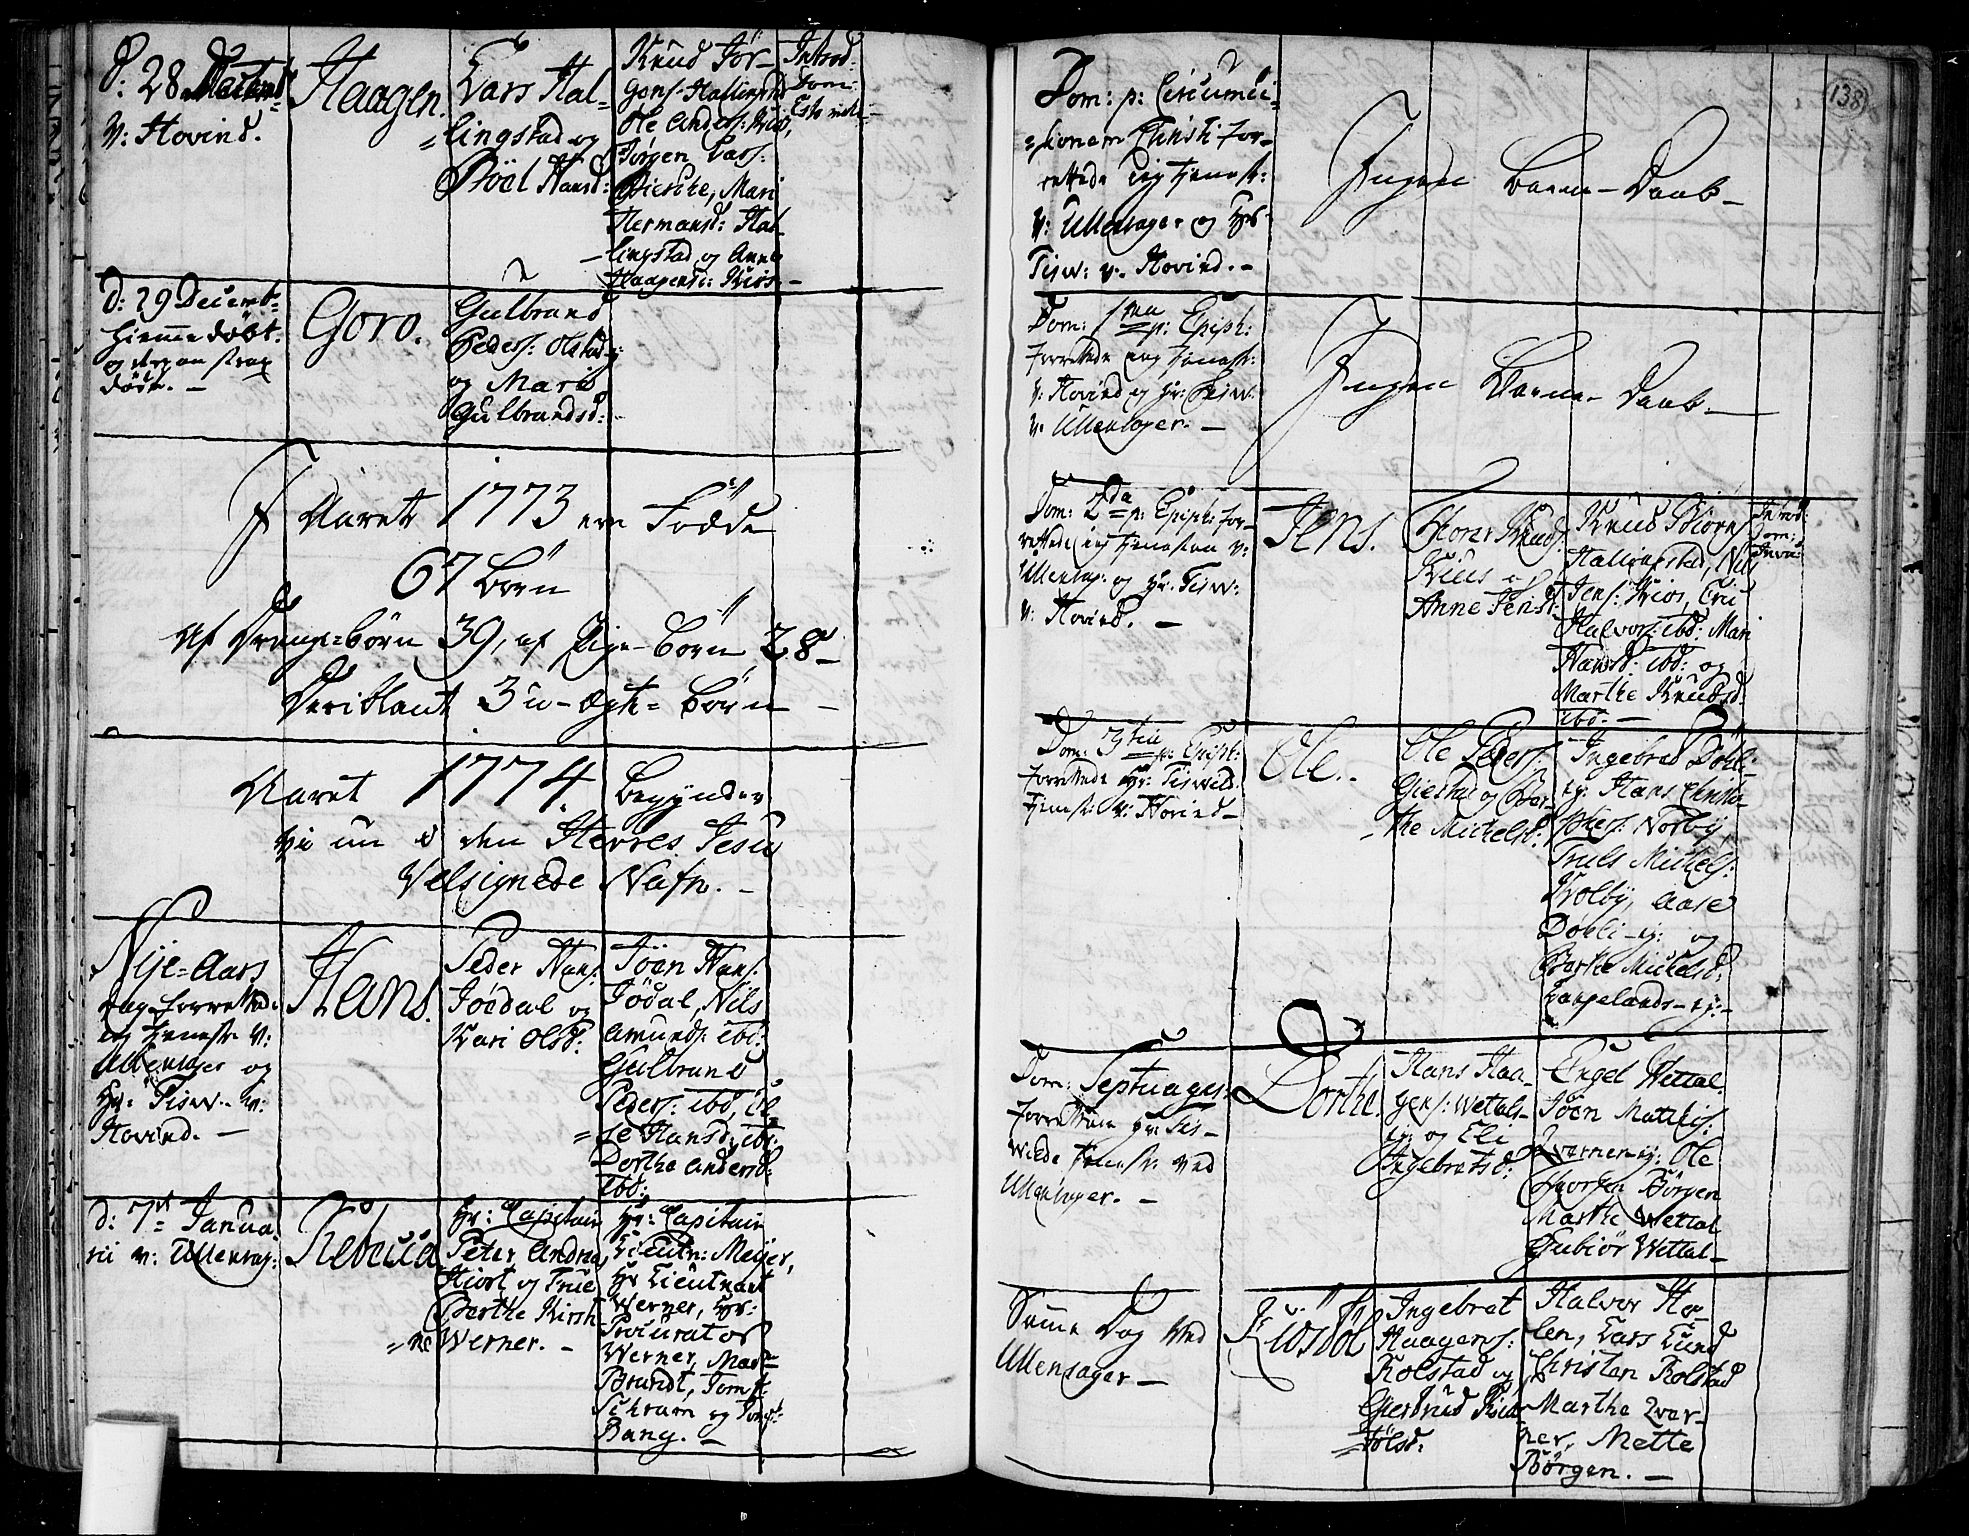 d: 28
v: Hovind.
Haagen.
Lars Hal=
=lingstad og
Böel Hansd:
Knud Jör-
gens: Hallingstad
Ole Anders: Kiös,
Jörgen Lars:
Mari
Hermansd: Hal-
-lingstad og Anne
Haagensd: Kiös
Introd:
Dom:
Esto mihi
d: 29 Decemb:
hiemme döbt
og derpaa strax
döde. -
Goro.
Gulbrand
Peders: Olstad
og Mari
Gulbrandsd:
I Aaret 1773 ere Födde
67 Börn
Af Drenge=börn 39, af Pige-börn 28
Deriblant 3 u-ægte=börn -
Aaret 1774. begynder
vi nu i den Herres Jesu
Velsignede Nafn. -
Nÿe=Aars
dag forrettede
ieg tienest: v:
Ullensager og
Hr: Tisw: v:
Hovind. -
Hans.
Peder Hans:
Jödal og
Kari Olsd:
Jöen Hans:
Jödal, Nils
Amunds: ibd:
Gulbrand
Peders: ibd, El
=se Hansd: ibd:
Dorthe Andersd:
ibd:
d: 7: Janua
rii v: Ullensag:
Rebecca
Hr: Capitain
Peter Andrea
Hiort og Frue
Berthe Kirsti-
=ne Werner. -
Hr: Capitain
Lieutn: Meÿer,
Hr Lieutnant
Werner, Hr:
Procurator
Werner, Mad:
Brandt, Jomf:
Schram og Jomf:
Bang. -
138
Dom: p: Circumci-
=sionem Christi for-
rettede ieg tienest:
v: Ullensager og Hr:
Tisw: v: Hovind. -
Ingen Barne-Daab -
Dom: 1ma p: Epiph:
forrettede ieg tienest:
v: Hovind og Hr: Tisw:
v: Ullensager. -
Ingen Barne-Daab -
Dom: 2da p: Epiph: for-
rettede ieg tienesten v:
Ullensag: og Hr: Tisw:
v: Hovind. -
Jens.
Thore Knuds:
Kiös og
Anne Jensd:
Knud Biörns:
Hallingstad, Nils
Jens: Kiös, Eri
Halvors: ibd: Mari
Hansd: ibd: og
Marthe Knudsd:
ibd: -
Introd:
Dom:
Dom: 3tia p: Epiph:
forrettede Hr: Tiswild
tienest: v: Hovind -
Ole.
Ole Peders:
Gielstad og Ber-
-the Michelsd:
Ingebred Döhli-
ej: Hans Christo-
phers: Norbÿ,
Truls Michels:
Rolbÿ, Aase
Döhli-ej: og
Berthe Michelsd:
Langelands-ej: -
Dom: Septuages:
forrettede Hr: Tis-
wilde tienest: ved
Ullensager. -
Dorthe.
Hans Haa-
gens: Wettal-
ej: og Eli
Ingebretsd:
Engel Wettal
Jöen Matthis:
Qvernen-ej: Ole
Börgen
Marthe Wettal
Gubiör Wettal -
Samme Dag ved
Ullensager -
Ingebret
Haagens:
Rolstad og
Giertrud Chri
=tölsd:
Halvor Ho-
len, Lars Lund
Christen Rolstad
Marthe Qver-
ner, Mette
Börgen. -